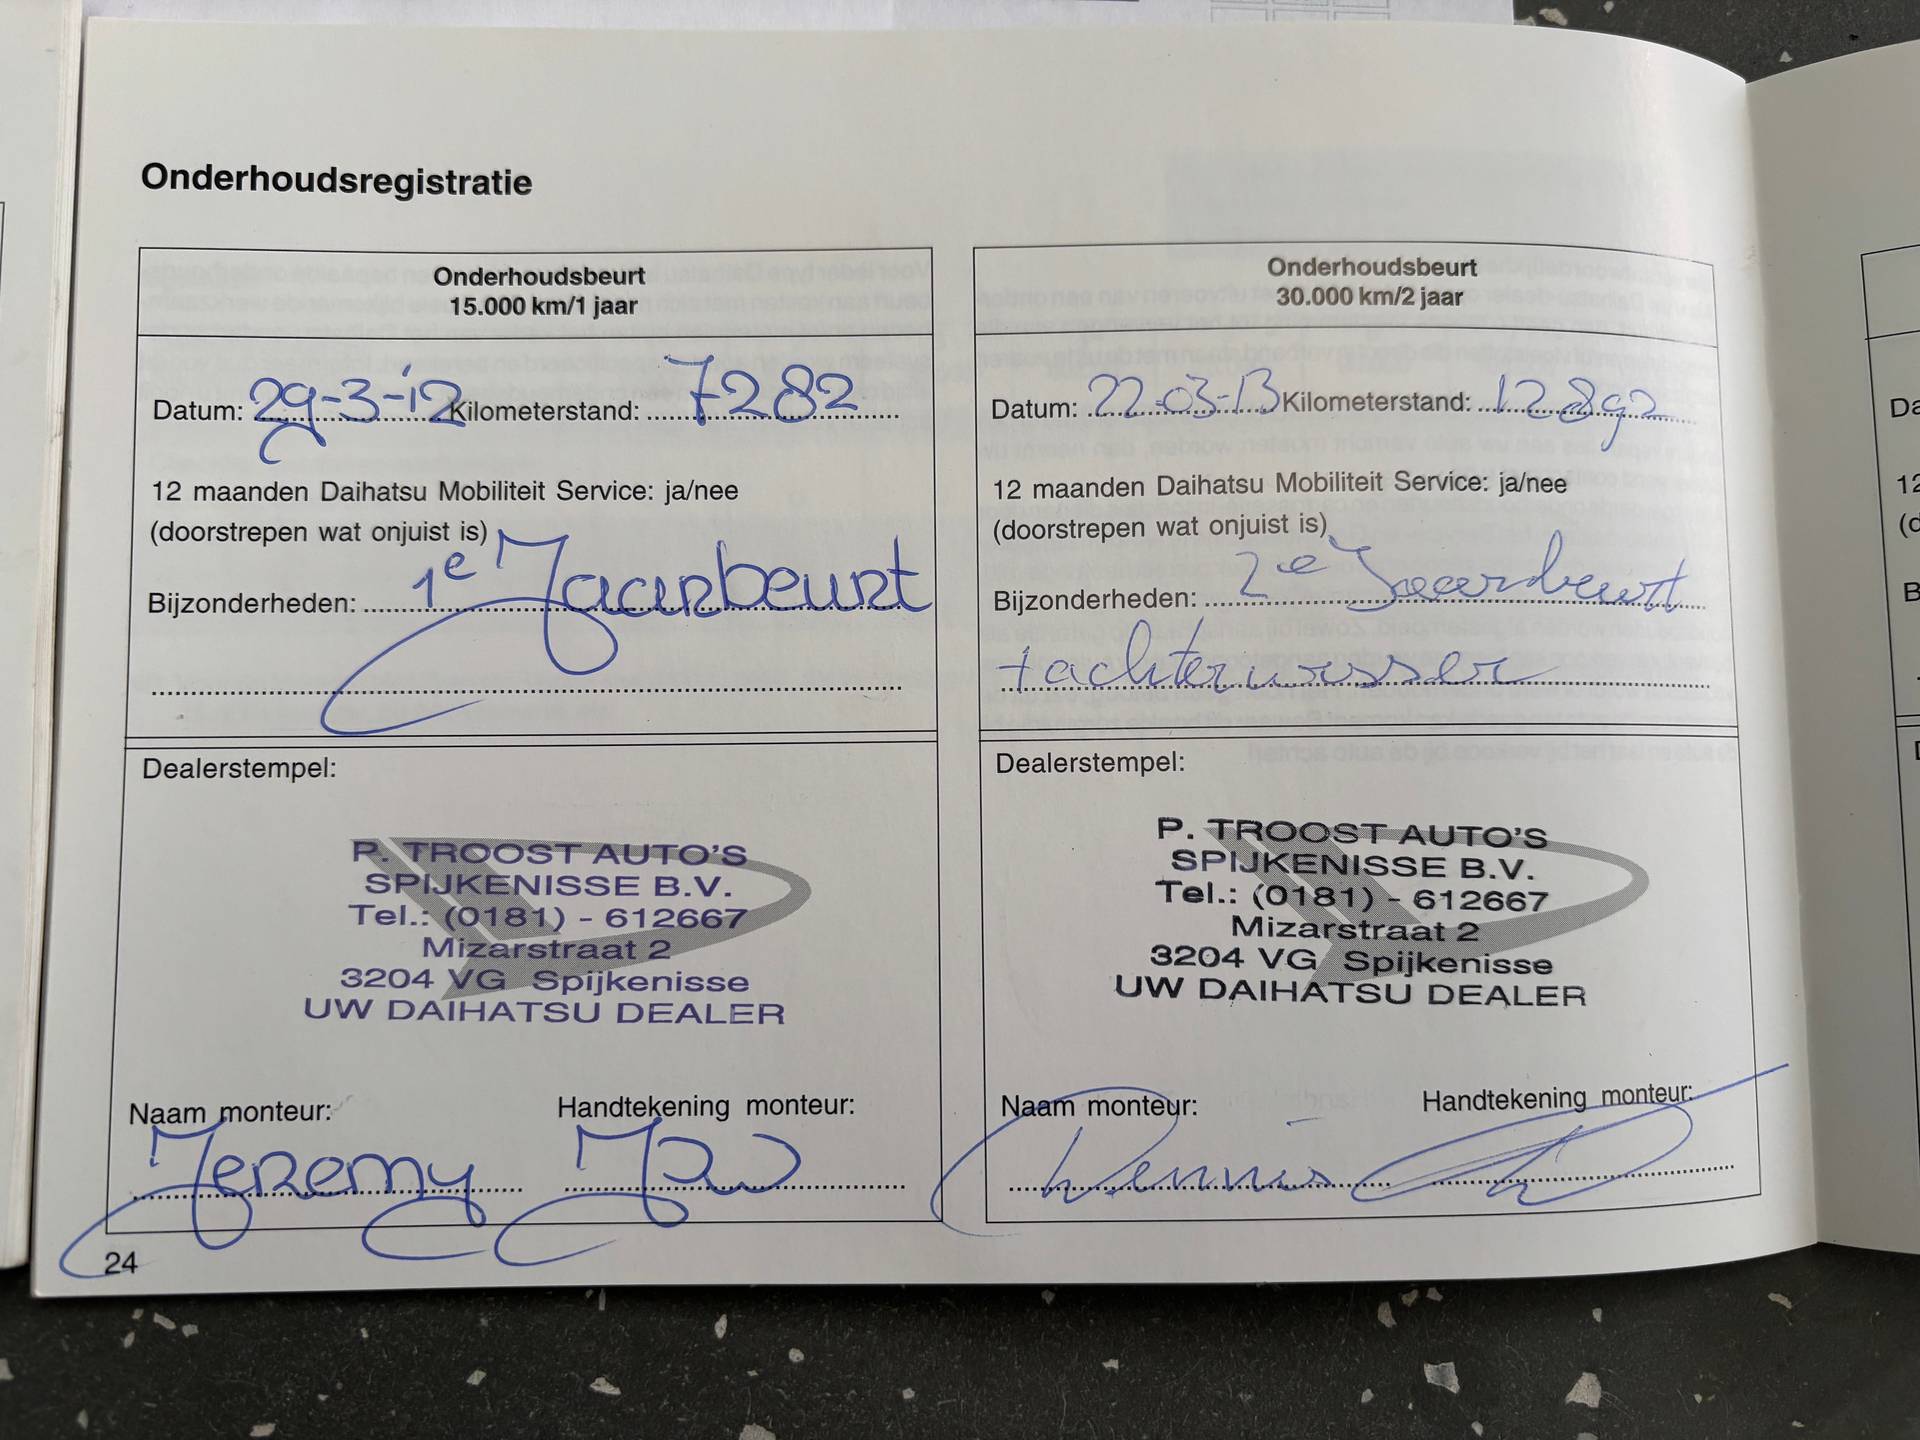 Onderhoudsregistratie
Onderhoudsbeurt
15.000 km/1 jaar
Datum: 29-3-12 Kilometerstand: 7282
12 maanden Daihatsu Mobiliteit Service: ja/nee
(doorstrepen wat onjuist is)
Bijzonderheden: 1e Jaarbeurt
Dealerstempel:
P. TROOST AUTO'S
SPIJKENISSE B.V.
Tel.: (0181) - 612667
Mizarstraat 2
3204 VG Spijkenisse
UW DAIHATSU DEALER
Naam monteur: Handtekening monteur:
Jeremy
24
Onderhoudsbeurt
30.000 km/2 jaar
Datum: 22-03-13 Kilometerstand: 12892
12 maanden Daihatsu Mobiliteit Service: ja/nee
(doorstrepen wat onjuist is)
Bijzonderheden: 2e Jaarbeurt
+ achterwisser
Dealerstempel:
P. TROOST AUTO'S
SPIJKENISSE B.V.
Tel.: (0181) - 612667
Mizarstraat 2
3204 VG Spijkenisse
UW DAIHATSU DEALER
Naam monteur: Handtekening monteur:
Dennis